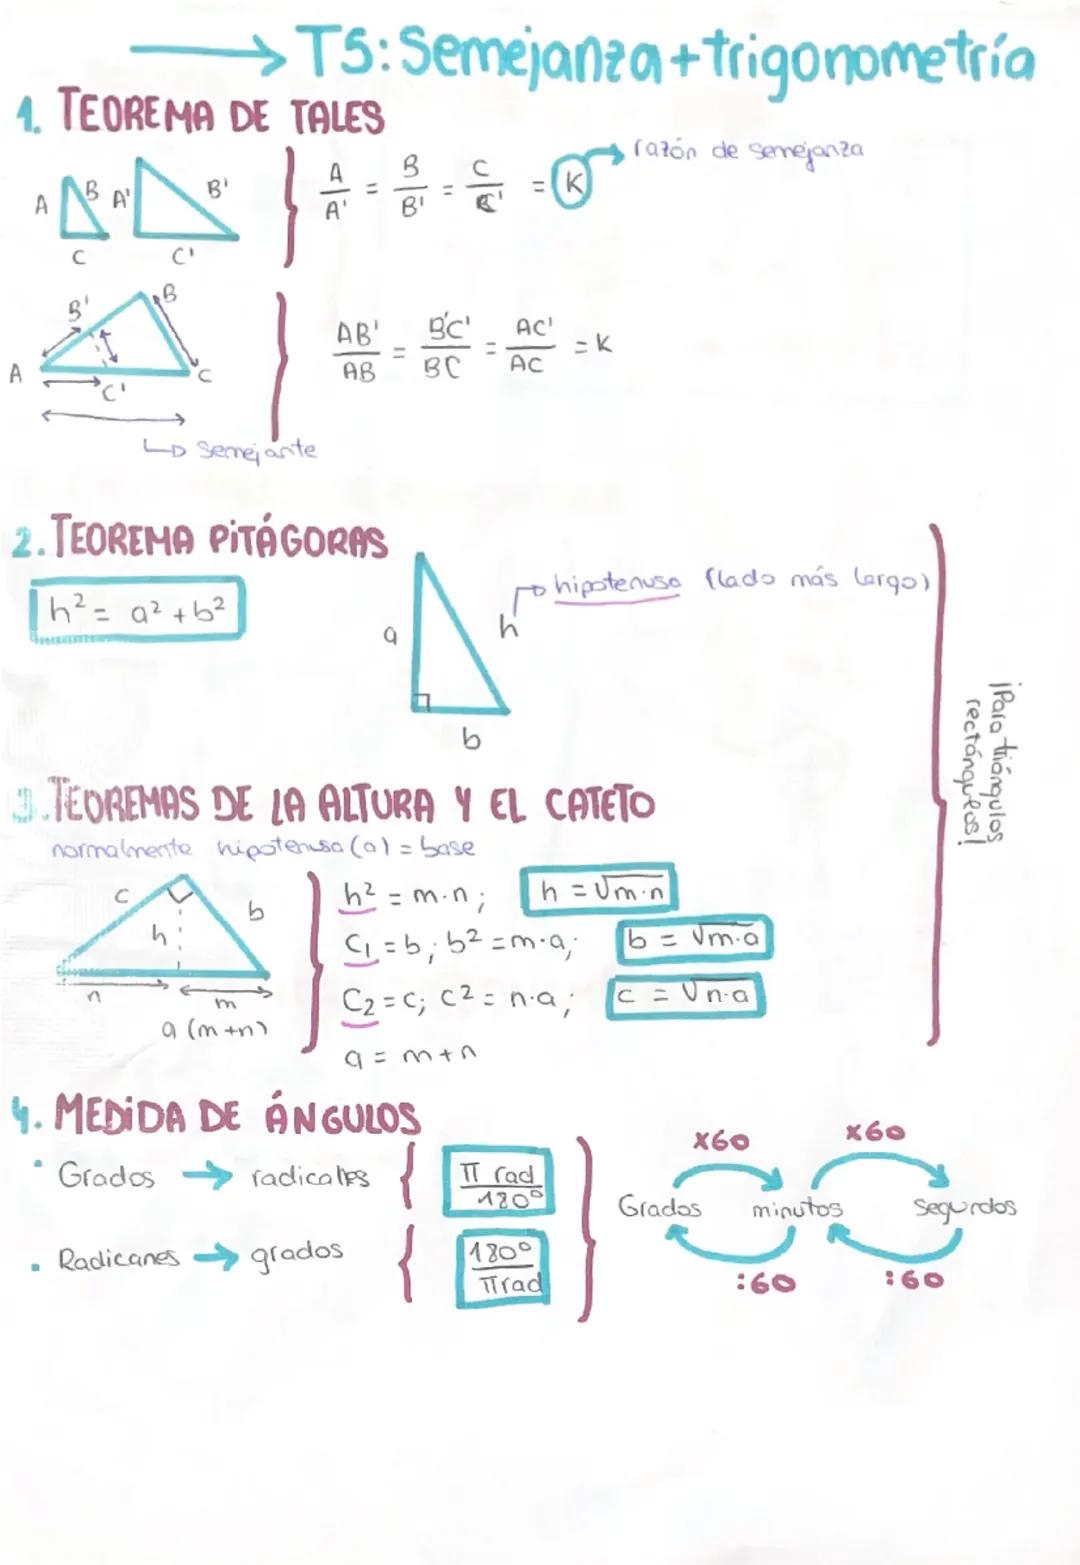 T5: Semejanza + trigonometría
1. TEOREMA DE TALES
A B C A' B' C'
A/A' = B/B' = C/C' = K
razón de semejanza
A B' B C' C
AB'/AB = B'C'/BC = AC'/AC = K
semejante
2. TEOREMA PITÁGORAS
h² = a² + b²
a h b
hipotenusa (lado más largo)
¡Para triángulos
rectángulos!
3. TEOREMAS DE LA ALTURA Y EL CATETO
normalmente hipotenusa (a) = base
c h b n m
a (m+n)
h² = m·n; h = √m·n
C₁ = b; b² = m·a; b = √m·a
C₂ = c; c² = n·a; c = √n·a
a = m+n
4. MEDIDA DE ÁNGULOS
· Grados → radicales π rad/180°
· Radicanes → grados 180°/π rad
x60 x60
Grados minutos segundos
:60 :60